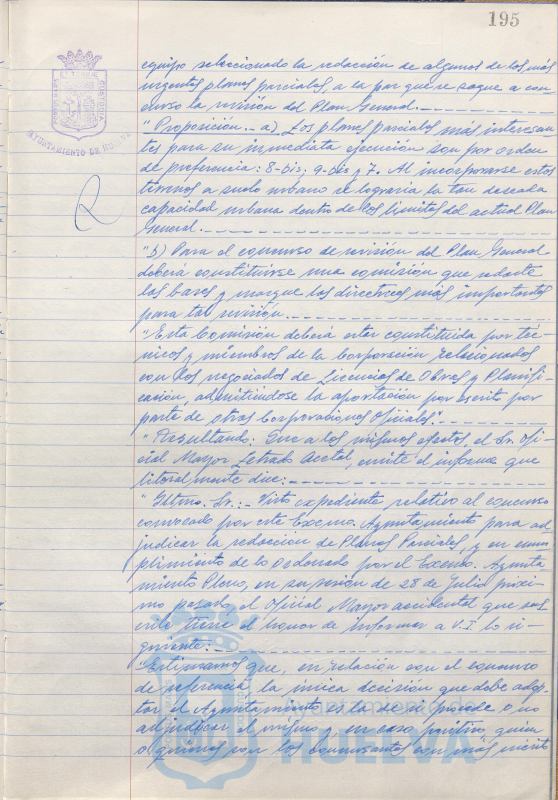 195
AYUNTAMIENTO DE HUELVA
equipo seleccionado la redacción de algunos de los más
urgentes planes parciales, a la par que se saque a con
curso la revisión del Plan General.
"Proposición.- a) Los planes parciales más interesan-
tes para su inmediata ejecución son por orden
de preferencia: 8-bis; 9-bis y 7. Al incorporarse estos
terrenos a suelo urbano se lograría la tan deseada
capacidad urbana dentro de los límites del actual Plan
General.
"b) Para el concurso de revisión del Plan General
deberá constituirse una comisión que redacte
las bases y marque las directrices más importantes
para tal revisión.
"Esta Comisión deberá estar constituida por téc-
nicos y miembros de la Corporación relacionados
con los negociados de Licencias de Obras y Planifi-
cación, admitiéndose la aportación por escrito por
parte de otras Corporaciones Oficiales".
"Resultando: Que a los mismos efectos, el Sr. Ofi-
cial Mayor Letrado Acctal, emite el informe que
literalmente dice:
"Iltmo. Sr.:- Visto expediente relativo al concurso
convocado por este Excmo. Ayuntamiento para ad-
judicar la redacción de Planes Parciales, y en cum
plimiento de lo ordenado por el Excmo. Ayunta
miento Pleno, en su sesión de 28 de Julio próxi-
mo pasado, el Oficial Mayor accidental que sus
cribe tiene el honor de informar a V.I. lo si-
guiente:
"Estimamos que, en relación con el concurso
de referencia, la única decisión que debe adop-
tar el Ayuntamiento es la de si procede o no
adjudicar el mismo y, en caso positivo, quien
o quienes son los concursantes con más mérito
HUELVA